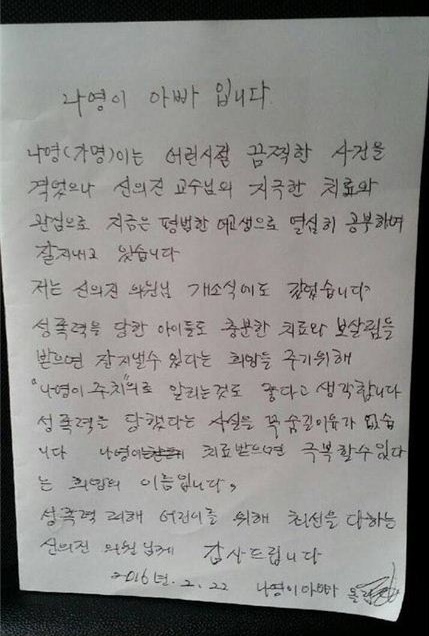 나영이 아빠 입니다
나영(가명)이는 어린시절 끔찍한 사건을
격었으나 신의진 교수님의 지극한 치료와
관심으로 지금은 평범한 여고생으로 열심히 공부하며
잘지내고 있습니다
저는 신의진 의원님 개소식에도 갔었습니다
성폭력을 당한 아이들도 충분한 치료와 보살핌을
받으면 잘지낼수 있다는 희망을 주기위해
"나영이 주치"의로 알리는것도 좋다고 생각합니다
성폭력을 당했다는 사실을 꼭 숨길이유가 없습
니다 나영이는 치료받으면 극복할수있다
는 희망의 이름입니다,
성폭력 피해 어린이를 위해 최선을 다하는
신의진 의원님께 감사드립니다
2016년. 2. 22 나영이아빠 올림